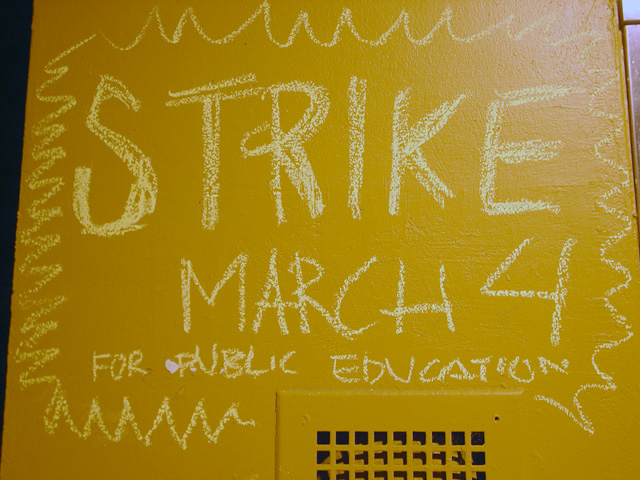 STRIKE
MARCH 4
FOR PUBLIC EDUCATION